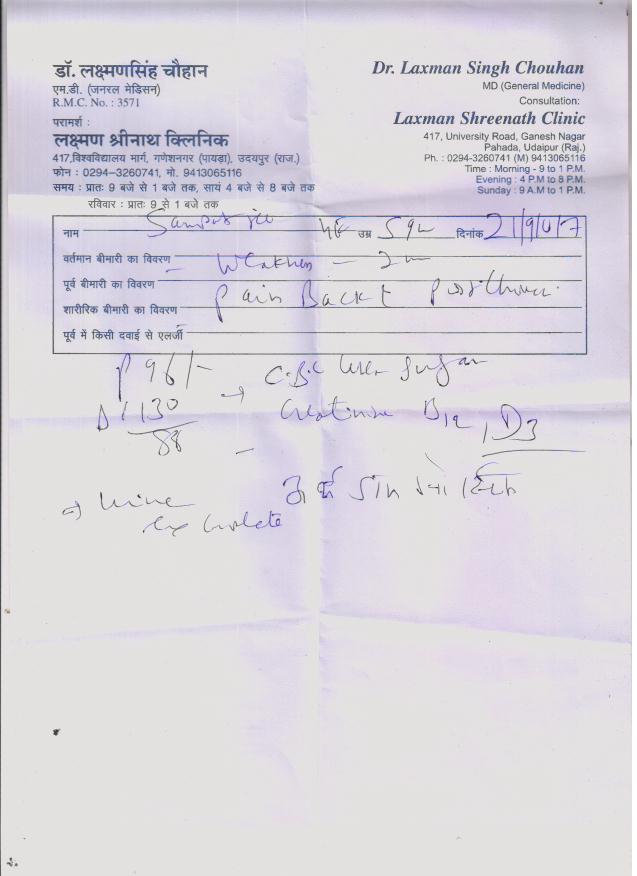 डॉ. लक्ष्मणसिंह चौहान
एम.डी. (जनरल मेडिसन)
R.M.C. No. : 3571
परामर्श :
लक्ष्मण श्रीनाथ क्लिनिक
417,विश्वविद्यालय मार्ग, गणेशनगर (पायड़ा), उदयपुर (राज.)
फोन : 0294–3260741, मो. 9413065116
समय : प्रातः 9 बजे से 1 बजे तक, सायं 4 बजे से 8 बजे तक
रविवार : प्रातः 9 से 1 बजे तक
Dr. Laxman Singh Chouhan
MD (General Medicine)
Consultation:
Laxman Shreenath Clinic
417, University Road, Ganesh Nagar
Pahada, Udaipur (Raj.)
Ph. : 0294-3260741 (M) 9413065116
Time : Morning - 9 to 1 P.M.
Evening : 4 P.M to 8 P.M.
Sunday : 9 A.M to 1 P.M.
नाम उम्र दिनांक
वर्तमान बीमारी का विवरण Weakness
पूर्व बीमारी का विवरण Pain Back
शारीरिक बीमारी का विवरण
पूर्व में किसी दवाई से एलर्जी
P 96/- C.B.C Urea Sugar
130/88 Creatinine B12, D3
Urine
complete